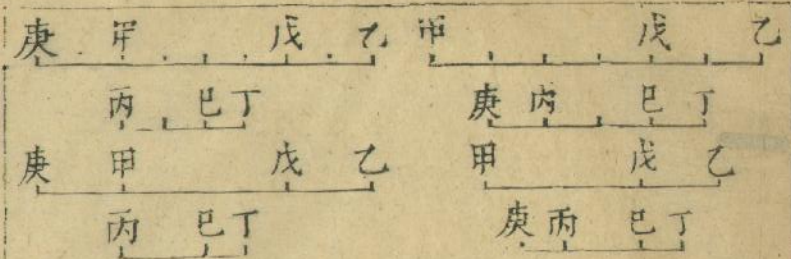 庚 甲 戊 乙 甲 戊 乙
丙 巳 丁 庚 丙 巳 丁
庚 甲 戊 乙 甲 戊 乙
丙 巳 丁 庚 丙 巳 丁